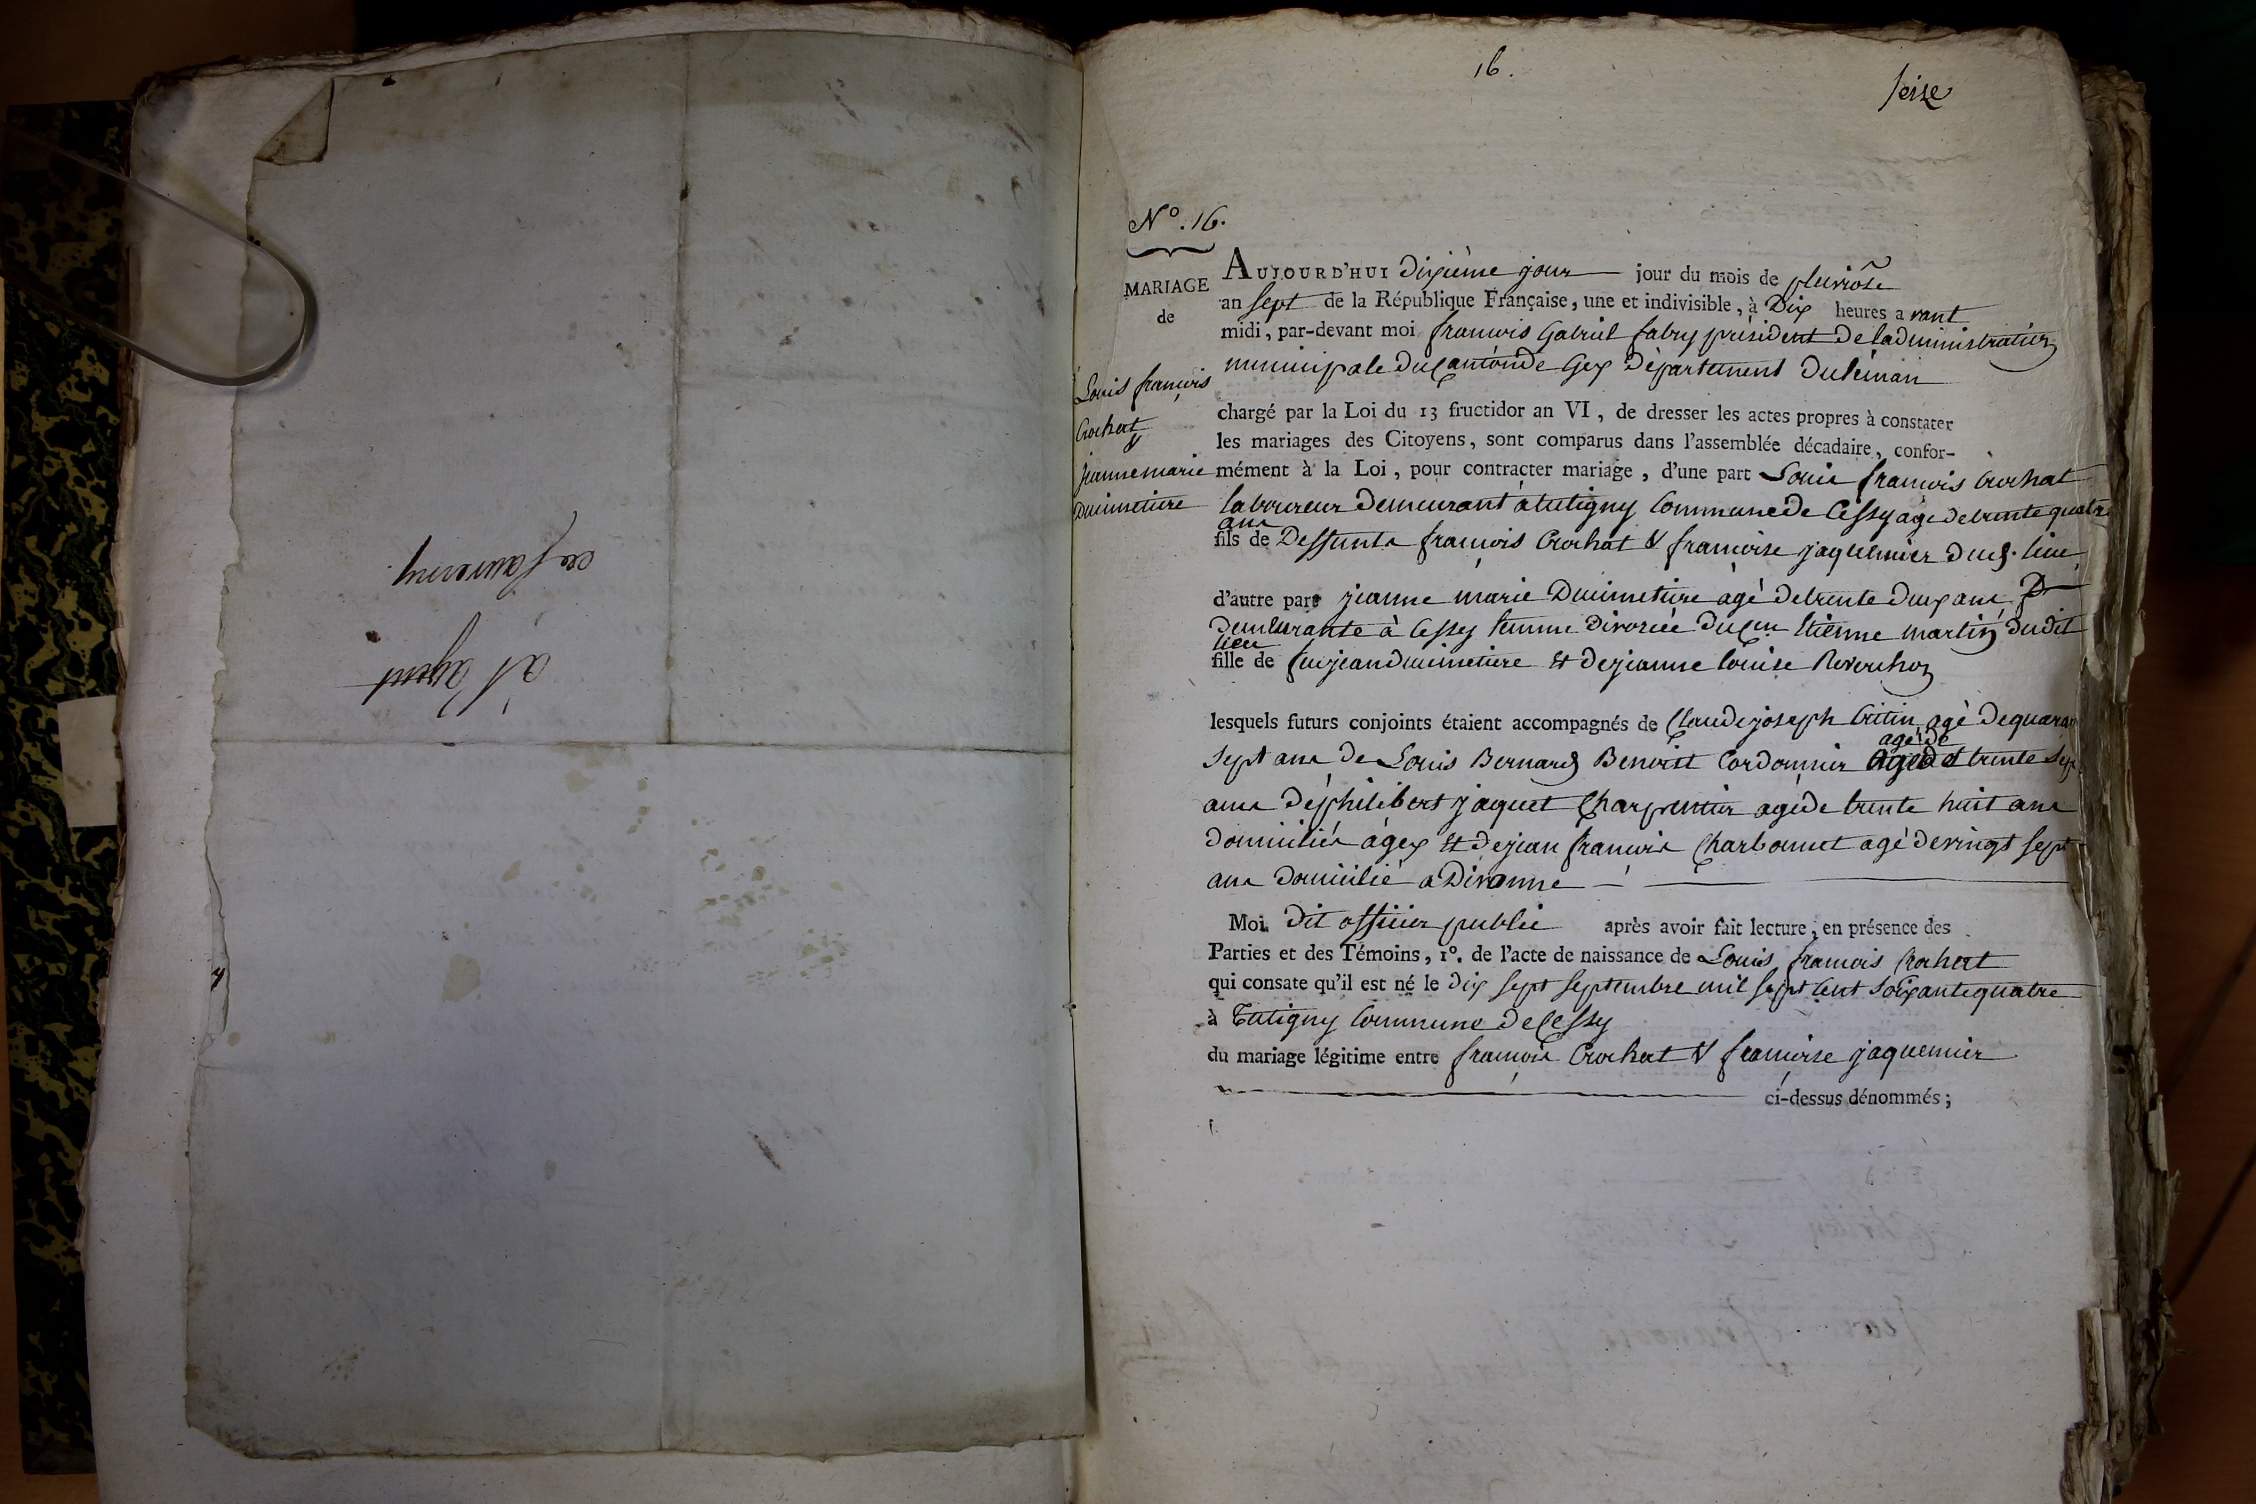 à l'agent
de Sauverny.
16.
seize
N°. 16.
MARIAGE
de
Louis françois
Crochat
&
jeanne marie
Ducimetiere
AUJOURD'HUI dixième jour jour du mois de pluviôse
an sept de la République Française, une et indivisible, à Dix heures avant
midi, par-devant moi francois Gabriel fabry président de ladministration
municipale du Canton de Gex Département du léman
chargé par la Loi du 13 fructidor an VI, de dresser les actes propres à constater
les mariages des Citoyens, sont comparus dans l'assemblée décadaire, confor-
mément à la Loi, pour contracter mariage, d'une part Louis francois Crochat
laboureur demeurant à tutigny Commune de Cessy agé de trente quatre
ans
fils de Deffunts francois Crochat & francoise jaquemier dud. lieu
d'autre part jeanne marie Ducimetiere agé de trente deux ans
demeurante à Cessy femme divorcée du Cen Etienne martin dudit
lieu
fille de feu jean ducimetiere Et de jeanne louise Roverchon
lesquels futurs conjoints étaient accompagnés de Claude joseph Critin agé de quaran
sept ans de Louis Bernard Benoist Cordonnier agé de trente sept
ans de philibert jaquet Charpentier agé de trente huit ans
domiciliés à gex Et de jean francois Charbonnet agé de vingt sept
ans domicilié a Divonne
Moi dit officier public après avoir fait lecture, en présence des
Parties et des Témoins, 1°. de l'acte de naissance de Louis francois Crochat
qui consate qu'il est né le dix sept septembre mil sept cent soixante quatre
à Tutigny Commune de Cessy
du mariage légitime entre françois Crochat & françoise jaquemier
ci-dessus dénommés;